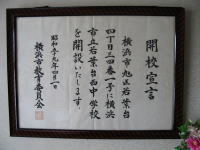 開校宣言
横浜市旭区若葉台
四丁目三四番一号に横浜
市立若葉台西中学校
を開設いたします。
昭和五十九年四月一日
横浜市教育委員会